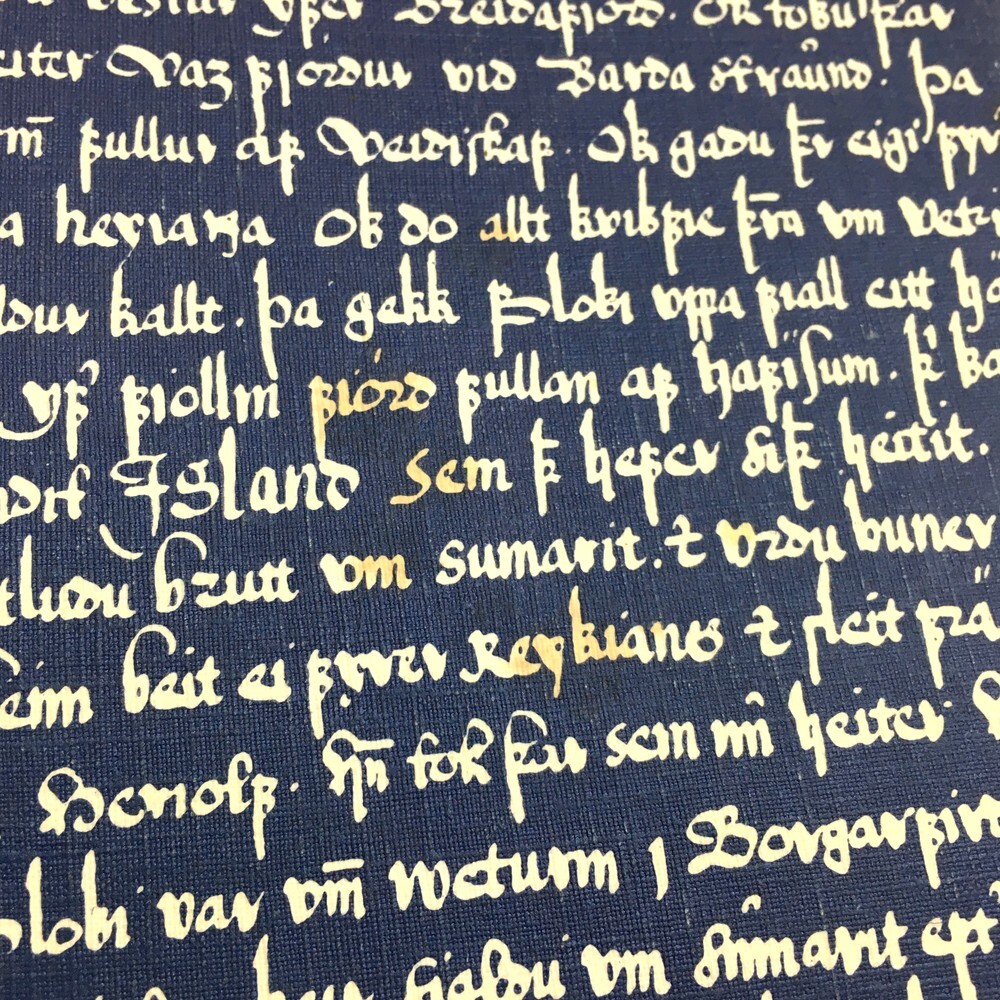 vestur yfer Breidafiord. ok toku þar
eiter Vaz fiordur vid Barda straund. þa
m̄ fullur af Veidiskap. Ok gadu þr eigi fyr
a heyiana Ok do allt kvikfie þra vm vetr
ldur kallt. þa gekk Floki vppa fiall eitt
yf fiollin fiord fullan af hafisum. þ
Jsland Sem þ hefer sik heitit.
tludu brutt vm sumarit. ⁊ vrdu buner
beit ei fyrer Reykianes ⁊ sleit fra
Heriolf. hn̄ tok þar sem nu heiter
Floki var vm̄ Weturin j Borgarfir
vm sumarit ept